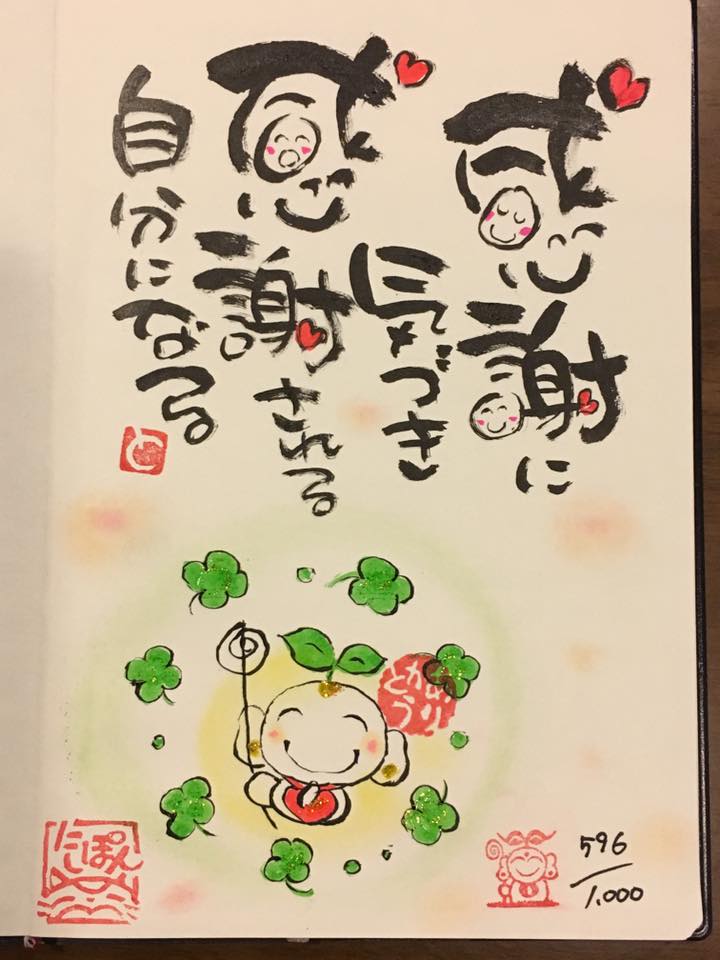 感謝に
気づき
感謝される
自分になる
と
ありがとう
にしぽん
596
1.000